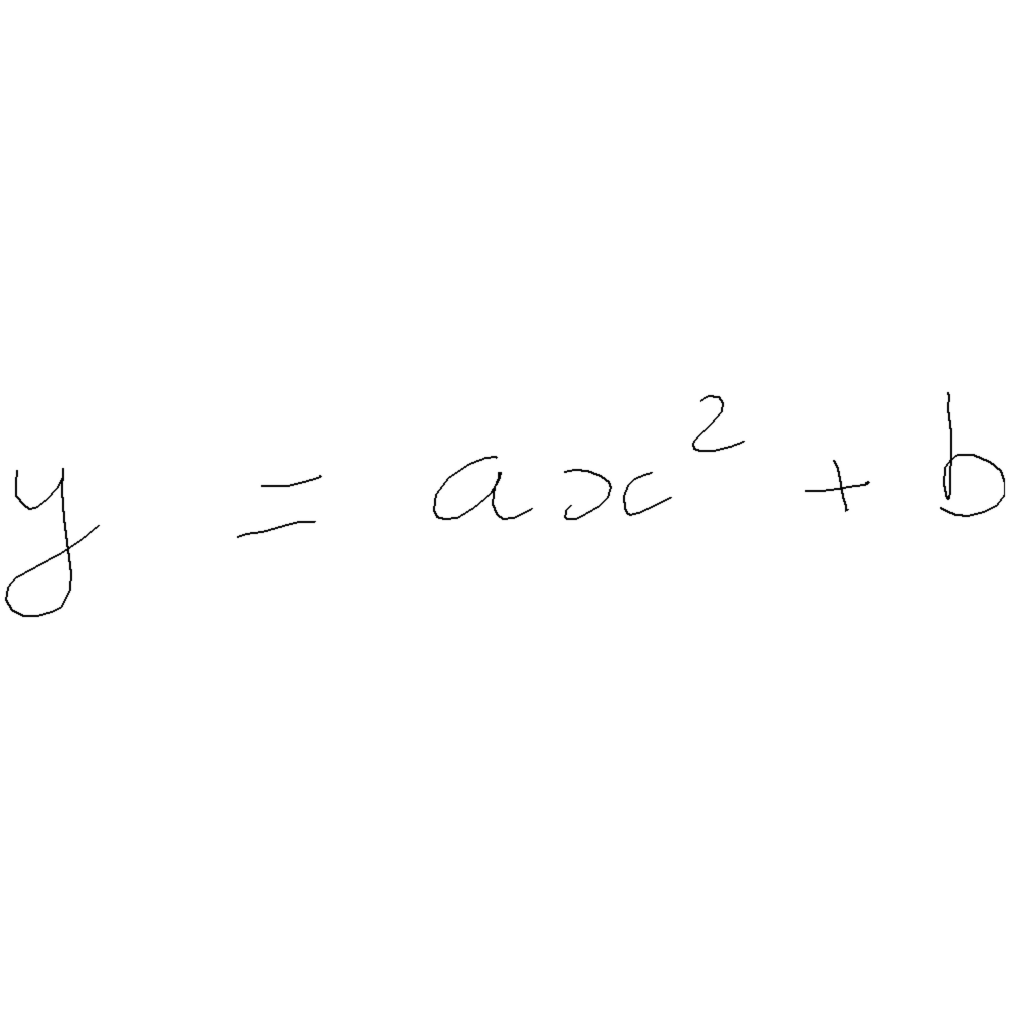 y = ax² + b